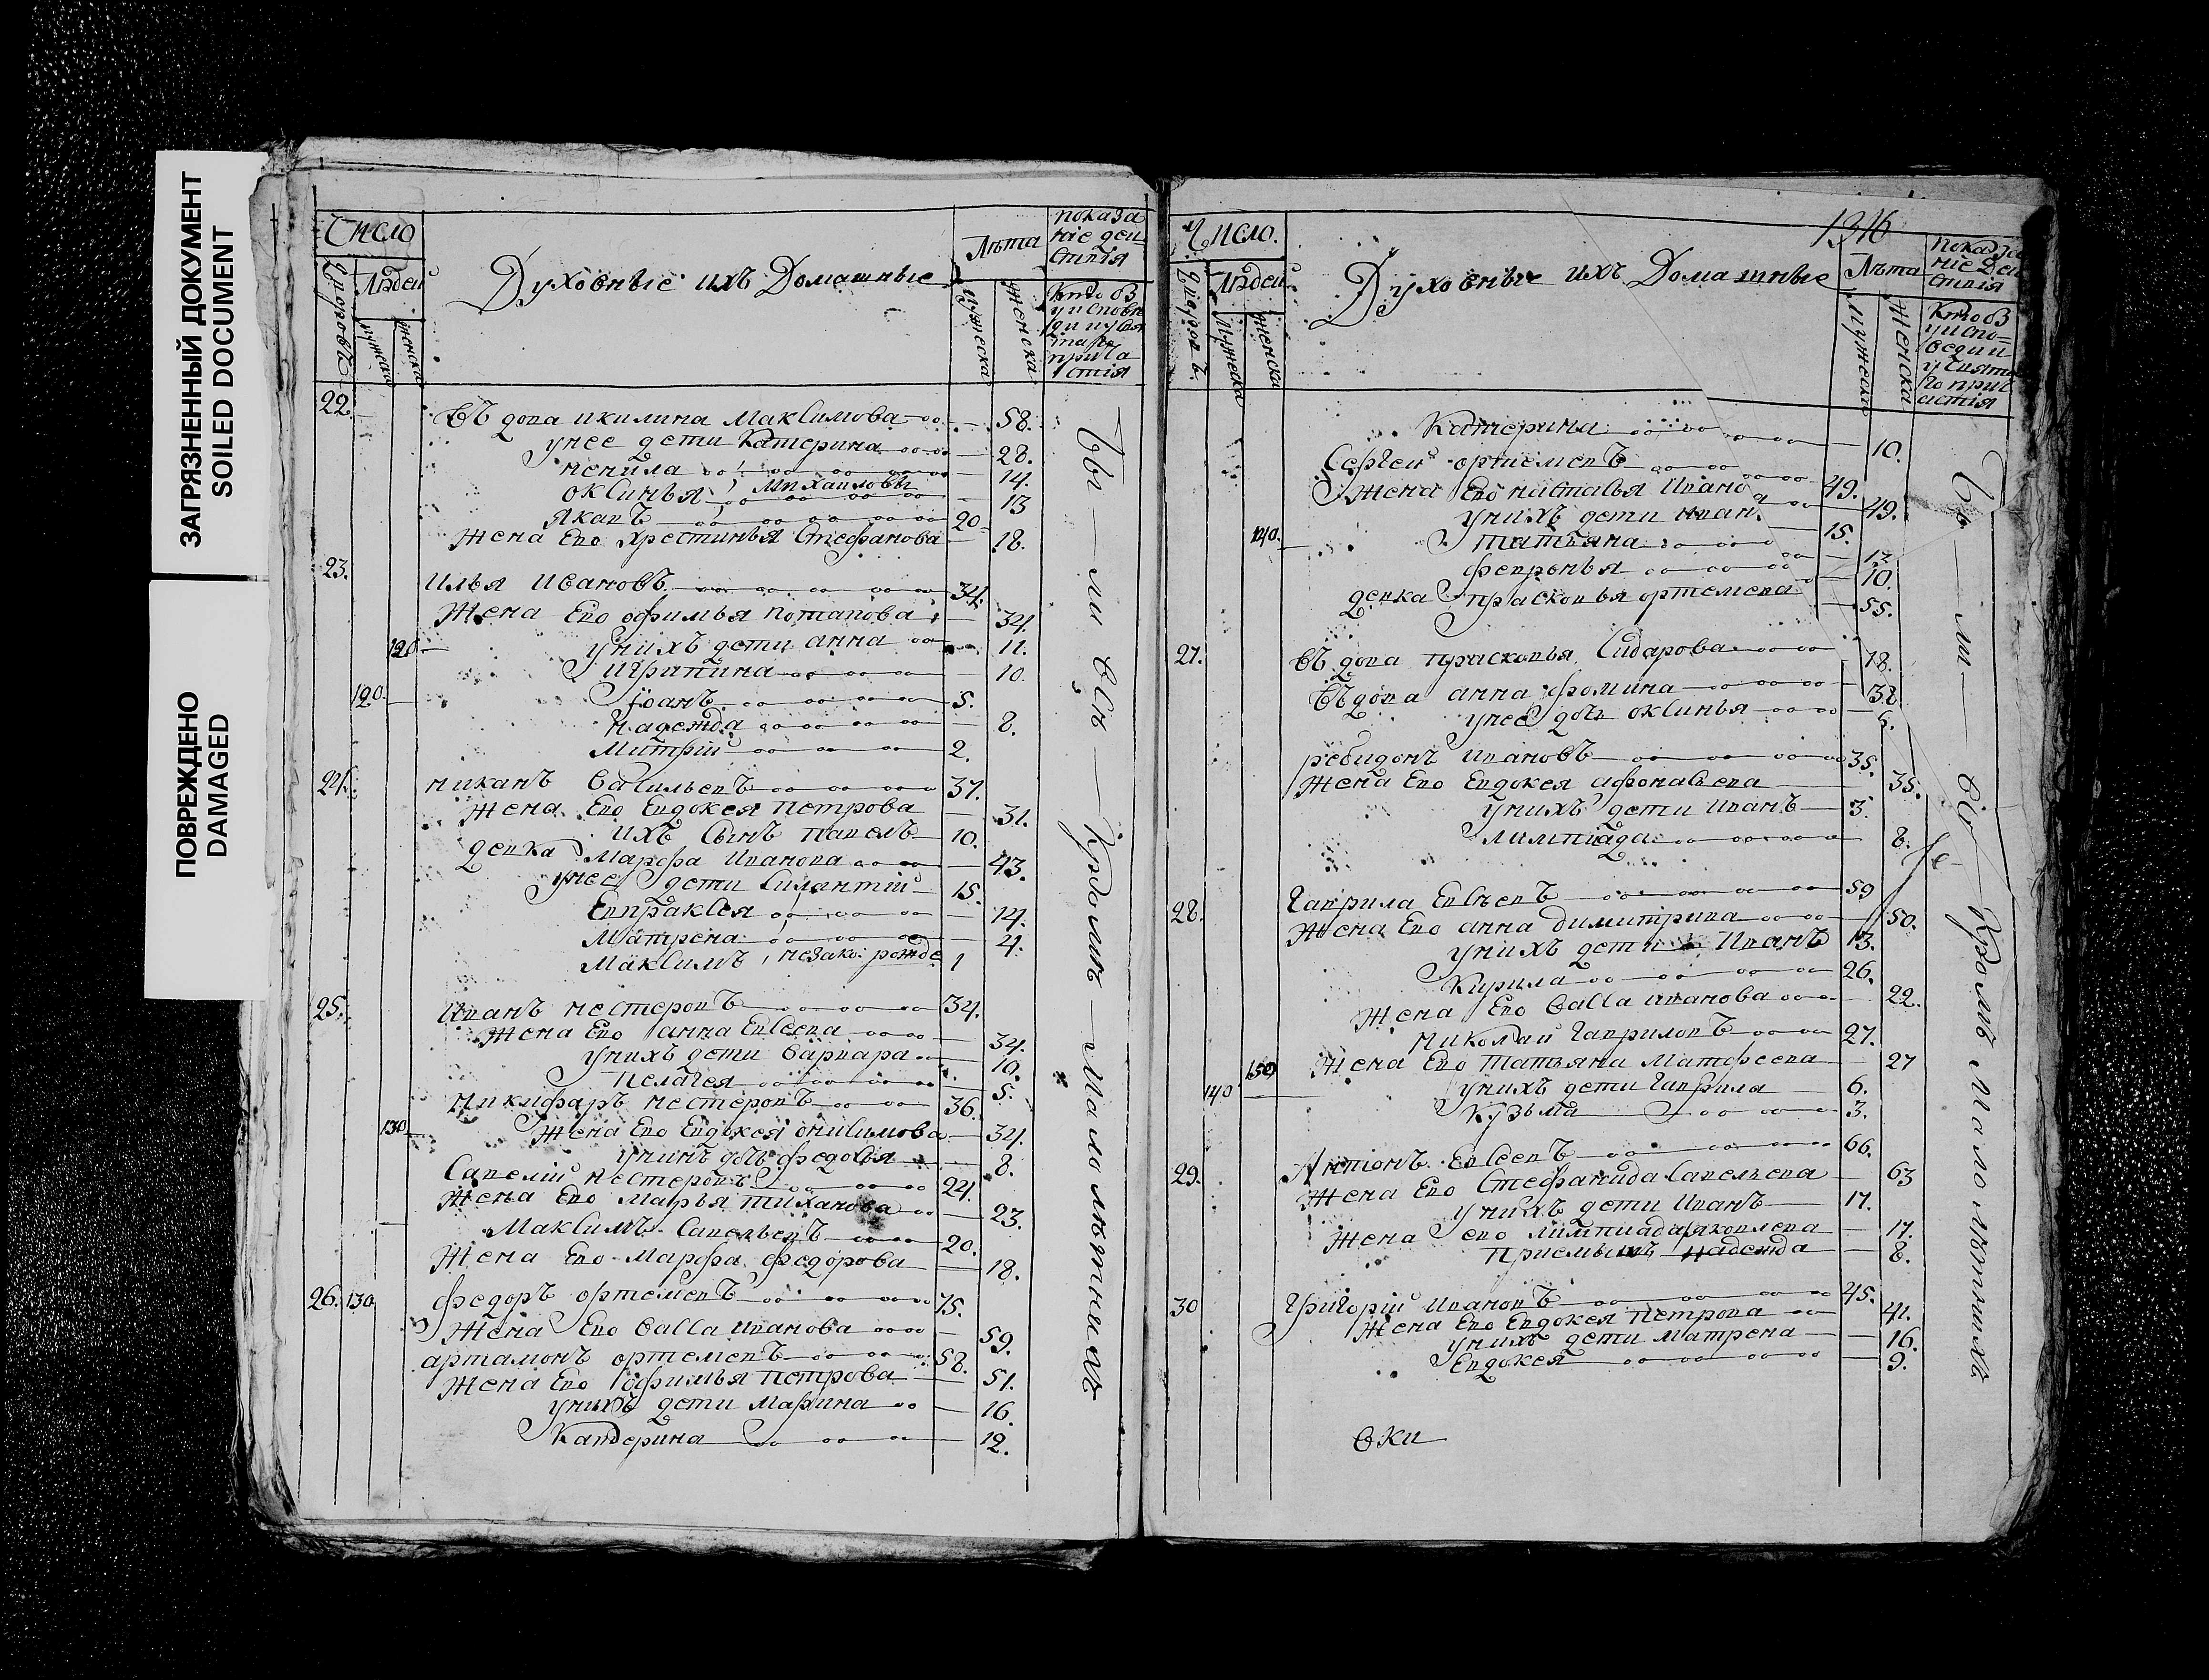 ЗАГРЯЗНЕННЫЙ ДОКУМЕНТ
SOILED DOCUMENT
ПОВРЕЖДЕНО
DAMAGED
Число
Людей
Духовные ихъ Домашные
Лѣта
показа
ніе деи
ствія
Кто б
22.
вдова икилина Максимова 58.
унее дети Катерина 28.
ненила 14.
оксинья Михаиловы 13
Яковъ 20
Жена Ево Хрестинья Стефанова 18.
23.
Илья Ивановъ 34.
Жена Ево офимья Потапова 34.
120 унихъ дети анна 11.
Игрипина 10.
120. Іоанъ 5.
Надежда 8.
Митрій 2.
24. никанъ Васильевъ 37.
Жена Ево Евдокея Петрова 31.
ихъ Сынъ павелъ 10.
девка Марфа Иванова 43.
унее дети Силантій 15.
Евпраксея 14.
Матрена 4.
Максимъ незако: рожде 1
25. Иванъ нестеровъ 34.
Жена Ево анна Евсеева 34.
унихъ дети Варвара 10.
пелагея 5.
Никифаръ нестеровъ 36.
130 Жена Ево Евдокея онисимова 34.
унихъ дочь федосья 8.
Савелій нестеровъ 24.
Жена Ево Марья тиханова 23.
Максимъ Савельевъ 20.
Жена Ево Марфа федорова 18.
26. 130 федоръ ортемевъ 75.
Жена Ево Васса иванова 59.
артамонъ ортемевъ 58.
Жена Ево офимья петрова 51.
унихъ дети Марина 16.
Катерина 12.
Бы — ли всѣ — Кромѣ — малолѣтнихъ
1316
Число.
Людей
Духовные ихъ Домашные
Лѣта
показа
ніе деи
ствія
Кто б
Катерина 10.
Сергей ортемевъ 49.
Жена Ево настасья Ивано 49.
унихъ дети иван 15.
140. татьяна 12
февронья 10.
девка прасковья ортемева 55.
27.
вдова прасковья Сидарова 78.
вдова анна фомина 38.
унее дочь оксинья
Жена Ево Евдокея афонасьева 35.
унихъ дети иванъ 3.
лимпиада 8.
28. Гаврила Евсеевъ 59
Жена Ево анна димитрива 50.
унихъ дети Иванъ 13.
Кирила 26.
Жена Ево Васса иванова 22.
Николай Гавриловъ 27.
150 Жена Ево татьяна Матфеева 27
140 унихъ дети гаврила 6.
Кузьма 3.
29. Антонъ Евсеевъ 66.
Жена Ево Стефанида Савельева 63
унихъ дети Иванъ 17.
Жена ево лимпиада яковлева 17.
приемышъ надежда 8.
30 Григорій Ивановъ 45.
Жена Ево Евдокея петрова 41.
унихъ дети Матрена 16.
Евдокея 9.
Бы — ли — всѣ — Кромѣ малолѣтнихъ